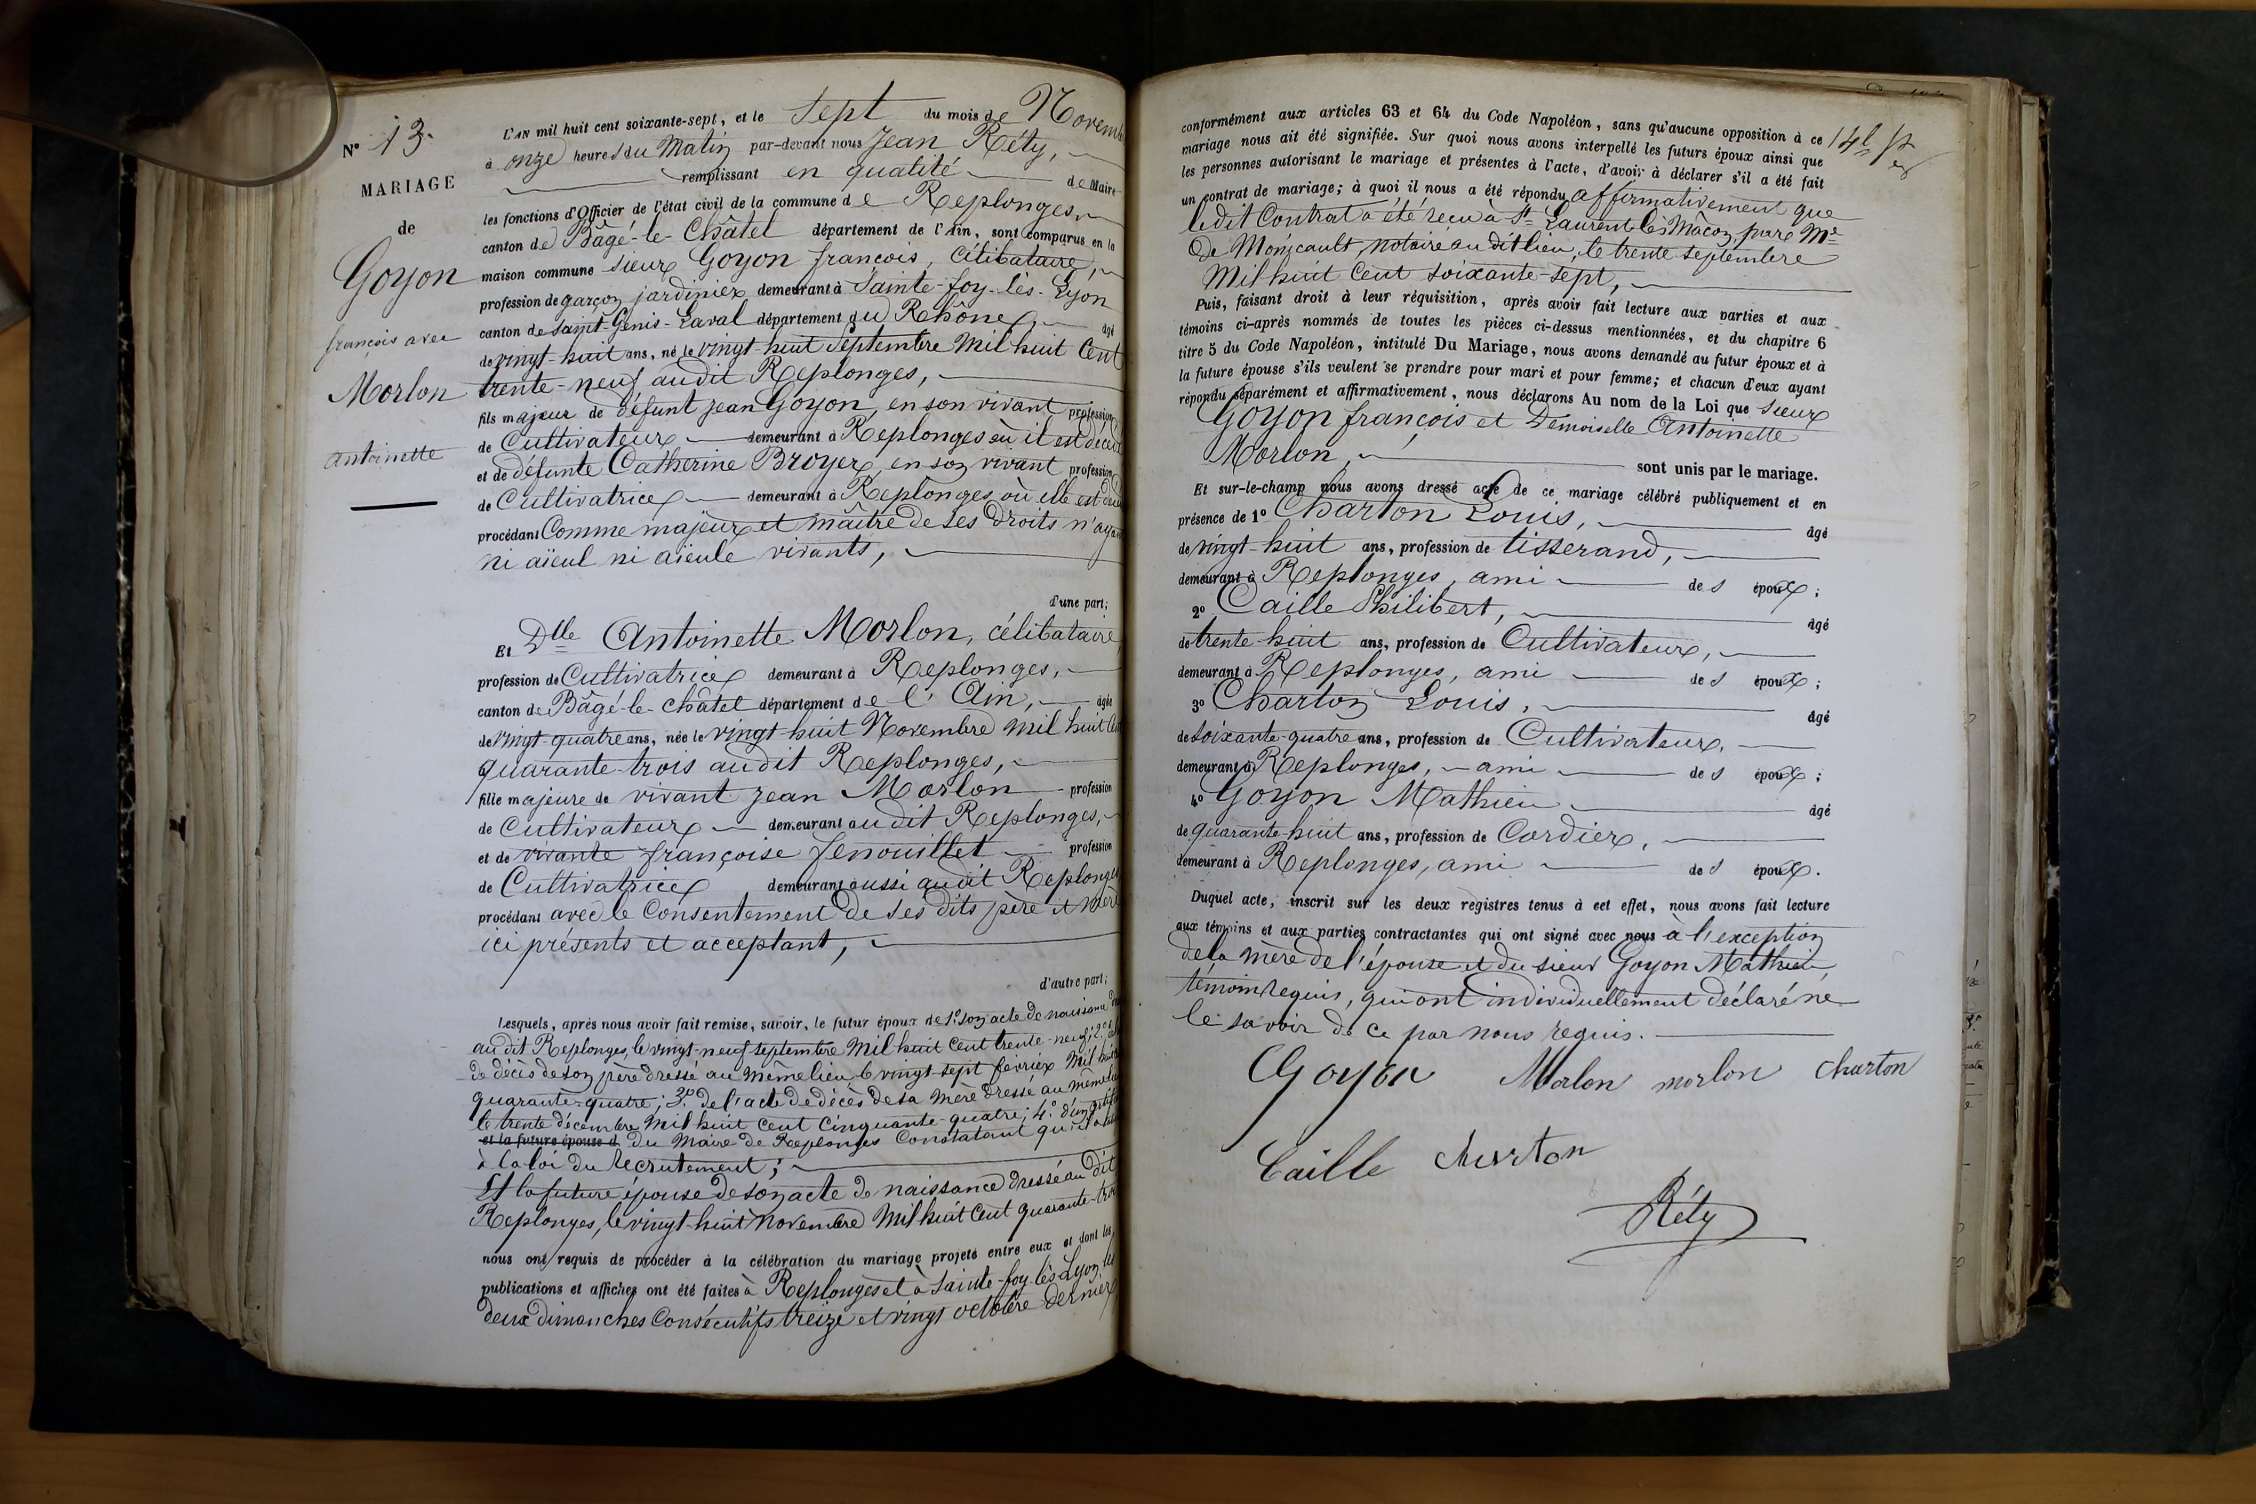 N° 13.
MARIAGE
de
Goyon
françois avec
Morlon
antoinette
L'AN mil huit cent soixante-sept, et le Sept du mois de Novem
à onze heures du Matin par-devant nous Jean Réty,
remplissant en qualité de Maire
les fonctions d'Officier de l'état civil de la commune de Replonges
canton de Bâgé-le-Châtel département de l'Ain, sont comparus en la
maison commune sieur Goyon françois, Célibataire,
profession de garçon jardinier demeurant à Sainte-foy-lès-Lyon
canton de Saint-Genis-Laval département du Rhône, âgé
de vingt-huit ans, né le vingt-huit Septembre Mil huit Cent
trente-neuf audit Replonges,
fils majeur de défunt jean Goyon, en son vivant profession
de Cultivateur demeurant à Replonges où il est décédé
et de défunte Catherine Broyer, en son vivant profession
de Cultivatrice demeurant à Replonges où elle est
procédant Comme majeur et maître de ses Droits n'ayant
ni aïeul ni aïeule vivants,
d'une part;
Et Dlle Antoinette Morlon, célibataire
profession de Cultivatrice demeurant à Replonges,
canton de Bâgé-le-châtel département de l'Ain, âgée
de vingt-quatre ans, née le vingt-huit Novembre Mil huit Cent
quarante-trois audit Replonges,
fille majeure de vivant jean Morlon profession
de Cultivateur demeurant audit Replonges,
et de vivante françoise fenouillet profession
de Cultivatrice demeurant aussi audit Replonges
procédant avec le Consentement de ses dits père et mère
ici présents et acceptant,
d'autre part;
Lesquels, après nous avoir fait remise, savoir, le futur époux de 1° son acte de naissance
audit Replonges, le vingt-neuf septembre Mil huit Cent trente-neuf; 2°
de décès de son père dressé au même lieu le vingt-sept février Mil huit
quarante-quatre; 3° de l'acte de décès de sa mère dressé au même lieu
le trente décembre Mil huit Cent Cinquante-quatre; 4° d'un
et la future épouse d du Maire de Replonges Constatant qu'il a
à la loi du recrutement;
Et la future épouse de son acte de naissance dressé au dit
Replonges, le vingt-huit Novembre Mil huit Cent quarante-trois
nous ont requis de procéder à la célébration du mariage projeté entre eux et dont les
publications et affiches ont été faites à Replonges et à Sainte-foy-lès-Lyon les
deux dimanches Consécutifs treize et vingt octobre dernier
conformément aux articles 63 et 64 du Code Napoléon, sans qu'aucune opposition à ce
mariage nous ait été signifiée. Sur quoi nous avons interpellé les futurs époux ainsi que
les personnes autorisant le mariage et présentes à l'acte, d'avoir à déclarer s'il a été fait
un contrat de mariage; à quoi il nous a été répondu affirmativement que
ledit Contrat a été reçu à St Laurent-lès-Mâcon, par Me
De Monicault, notaire au dit lieu, le trente septembre
Mil huit Cent soixante-sept,
Puis, faisant droit à leur réquisition, après avoir fait lecture aux parties et aux
témoins ci-après nommés de toutes les pièces ci-dessus mentionnées, et du chapitre 6
titre 5 du Code Napoléon, intitulé Du Mariage, nous avons demandé au futur époux et à
la future épouse s'ils veulent se prendre pour mari et pour femme; et chacun d'eux ayant
répondu séparément et affirmativement, nous déclarons Au nom de la Loi que sieur
Goyon françois et Demoiselle Antoinette
Morlon, sont unis par le mariage.
Et sur-le-champ nous avons dressé acte de ce mariage célébré publiquement et en
présence de 1° Charton Louis, âgé
de vingt-huit ans, profession de tisserand,
demeurant à Replonges, ami des époux;
2° Caille Philibert, âgé
de trente-huit ans, profession de Cultivateur,
demeurant à Replonges, ami des époux;
3° Charton Louis, âgé
de soixante-quatre ans, profession de Cultivateur,
demeurant à Replonges, ami des époux;
4° Goyon Mathieu âgé
de quarante-huit ans, profession de Cordier,
demeurant à Replonges, ami des époux.
Duquel acte, inscrit sur les deux registres tenus à cet effet, nous avons fait lecture
aux témoins et aux parties contractantes qui ont signé avec nous à l'exception
de la mère de l'épouse et du sieur Goyon Mathieu
témoin requis, qui ont individuellement déclaré ne
le savoir de ce par nous requis.
Goyon Morlon morlon Charton
Caille churton
Réty